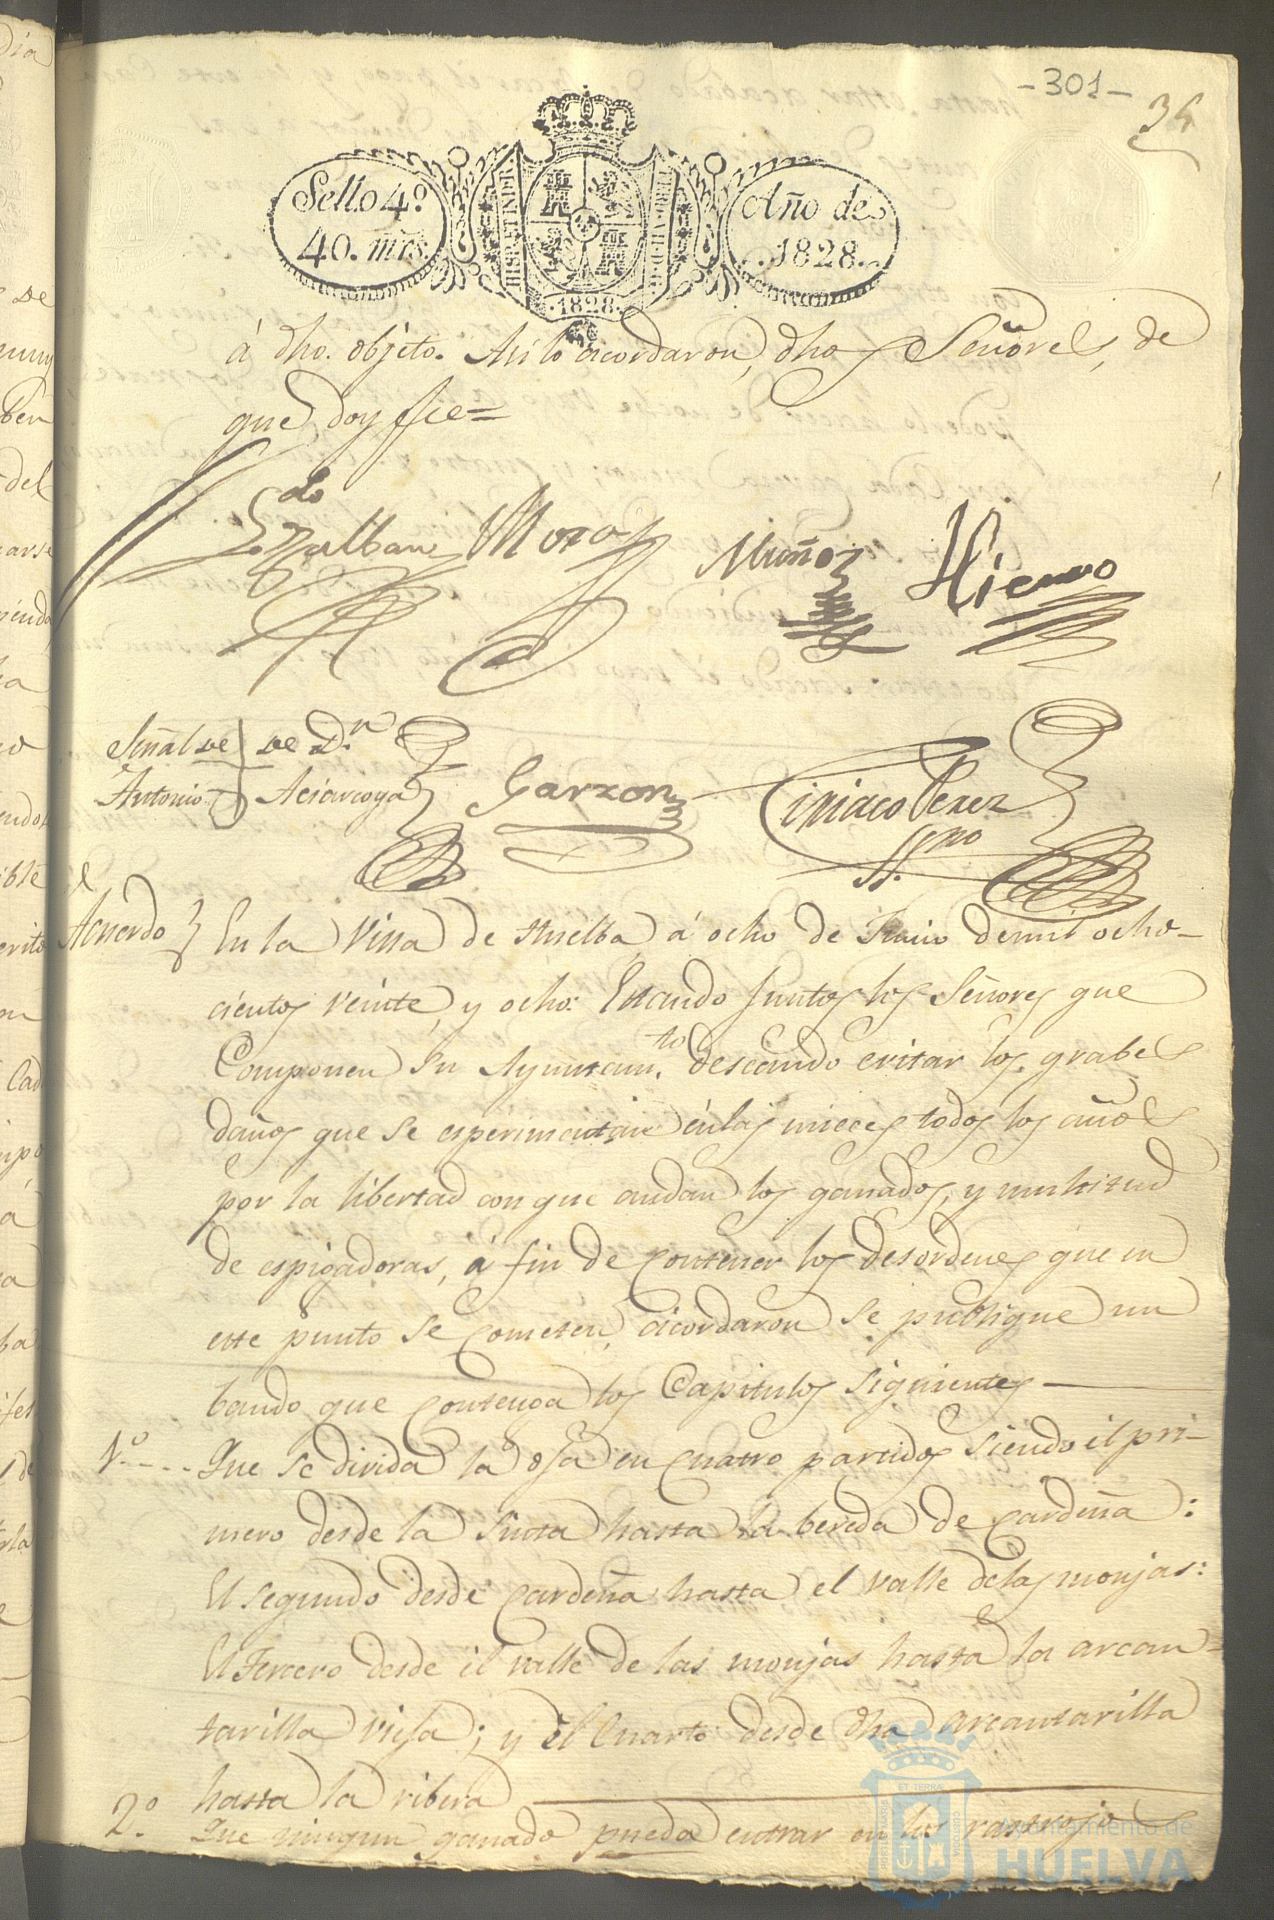 -301-
34
Sello 4º
40. mrs.
HISPANIAR
Año de
1828.
.1828.
á dho. objeto. Asi lo acordaron, dhos Señores, de
que doy fee=
Ldo
Zalban Mora Muñoz Hierro
Señal de de Dn.
Antonio Garzon Ciriaco Perez
Ssno
Acuerdo En la Villa de Huelba á ocho de Junio de mil ocho-
cientos veinte, y ocho: Estando Juntos los Señores que
Componen su Ayuntam.to deseando evitar los grabes
daños que se esperimentan en las mieces todos los años
por la libertad con que andan los ganados, y multitud
de espigadoras, á fin de contener los desordenes que en
este punto se cometen, acordaron se publique un
bando que contenga los Capitulos siguientes
1.º Que se divida la oja en cuatro partidos siendo el pri-
mero desde la hasta la bereda de Cardeña:
El segundo desde Cardeña hasta el valle delas monjas:
El Tercero desde el valle de las monjas hasta la arcan-
tarilla vieja; y el Cuarto desde dha arcantarilla
hasta la ribera
2.º Que ningun ganado pueda entrar en los rastrojos
Ayuntamiento de
HUELVA